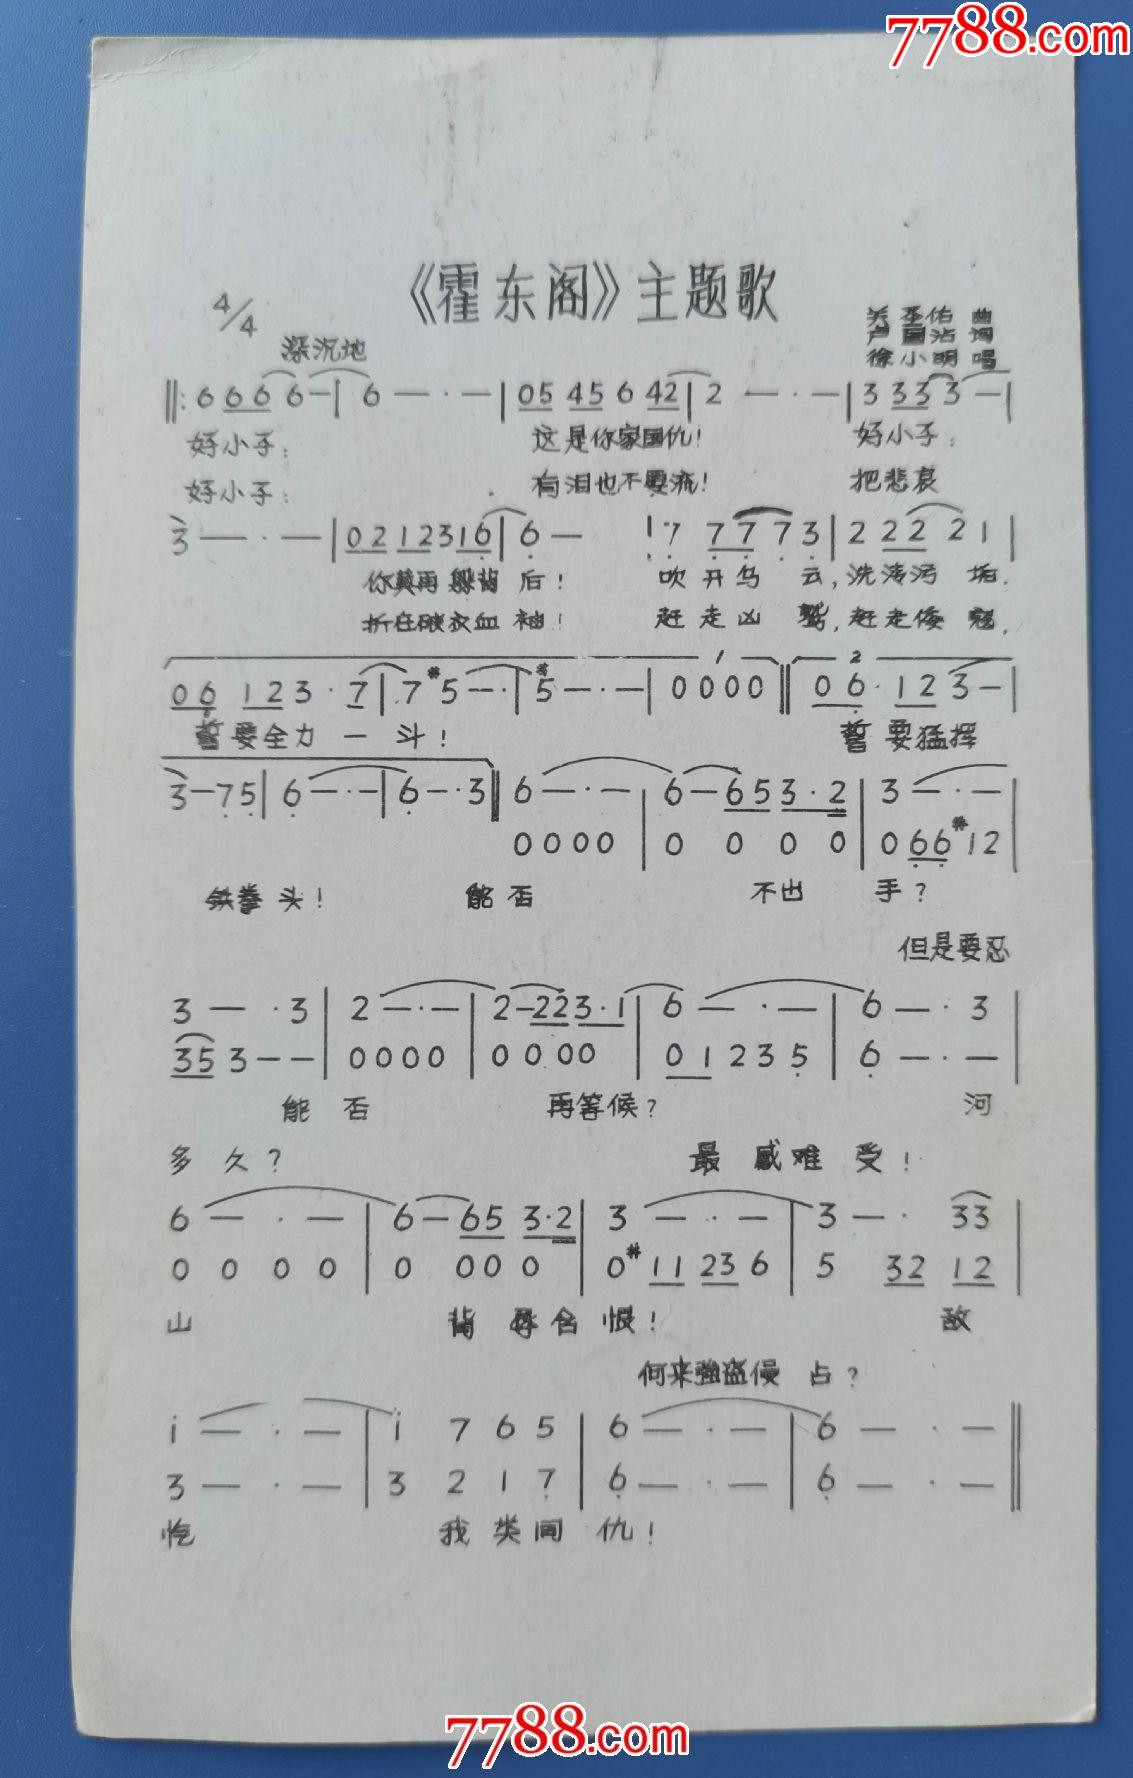 7788.com
《霍东阁》主题歌
4/4
关圣佑 曲
卢国沾 词
深沉地
徐小明 唱
‖: 6 6 6 6 — | 6 — · — | 05 45 6 42 | 2 — · — | 3 33 3 — |
好小子: 这是你家国仇! 好小子:
好小子: 有泪也不要流! 把悲哀
3 — · — | 02 12 3 16 | 6 — 7 7 7 7 3 | 2 22 2 1 |
你莫再躲背后! 吹开乌云,洗涛污垢.
折在破衣血袖! 赶走凶鹫,赶走倭寇,
1 2
06 12 3 · 7 | 7 #5 — · | #5 — · — | 0000 ‖ 06 · 12 3 — |
誓要全力一斗! 誓要猛挥
3 — 7 5 | 6 — · — | 6 — · 3 ‖ 6 — · — | 6 — 65 3·2 | 3 — · — |
0000 | 0 0 0 0 | 0 66 #12
铁拳头! 能否 不出 手?
但是要忍
3 — · 3 | 2 — · — | 2 — 22 3·1 | 6 — · — | 6 — · 3 |
35 3 — — | 0000 | 0000 | 01 2 3 5 | 6 — · —
能否 再等候? 河
多久? 最感难受!
6 — · — | 6 — 65 3·2 | 3 — · — | 3 — · 33 |
0 0 0 0 | 0 00 0 | 0 #11 23 6 | 5 32 12 |
山 背 辱含恨! 敌
何来强盗侵占?
i — · — | i 7 6 5 | 6 — · — | 6 — · — ‖
3 — · — | 3 2 1 7 | 6 — · — | 6 — · — ‖
忾 我 类同仇!
7788.com